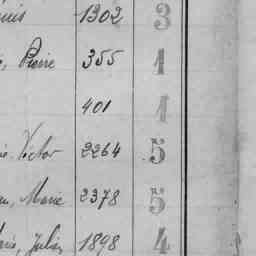 1302 3
Pierre 355 1
401 1
Victor 2264 5
Marie 2378 5
Jules 1898 4